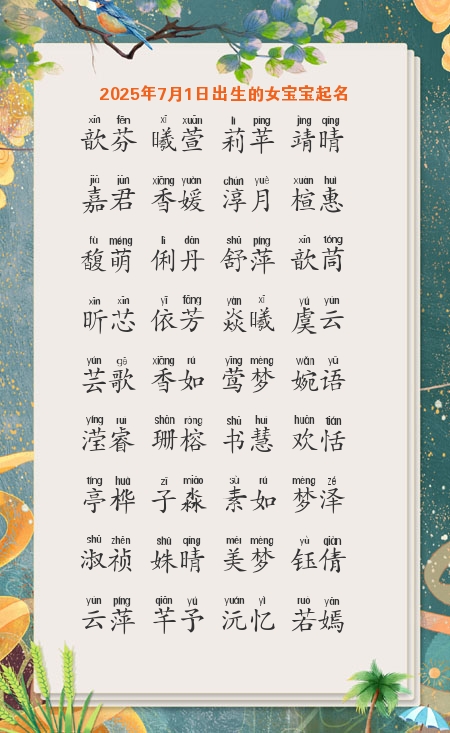 2025年7月1日出生的女宝宝起名
xīn fēn xī xuān lì píng jìng qíng
歆芬 曦萱 莉苹 靖晴
jiā jūn xiāng yuàn chún yuè xuān huì
嘉君 香媛 淳月 楦惠
fù méng lì dān shū píng xīn tóng
馥萌 俐丹 舒萍 歆茼
xīn xīn yī fāng yàn xī yú yún
昕芯 依芳 焱曦 虞云
yún gē xiāng rú yīng mèng wǎn yǔ
芸歌 香如 莺梦 婉语
yíng ruì shān róng shū huì huān tián
滢睿 珊榕 书慧 欢恬
tíng huà zǐ miǎo sù rú mèng zé
亭桦 子淼 素如 梦泽
shū zhēn shū qíng měi mèng yù qiàn
淑祯 姝晴 美梦 钰倩
yún píng qiān yú yuán yì ruò yān
云萍 芊予 沅忆 若嫣